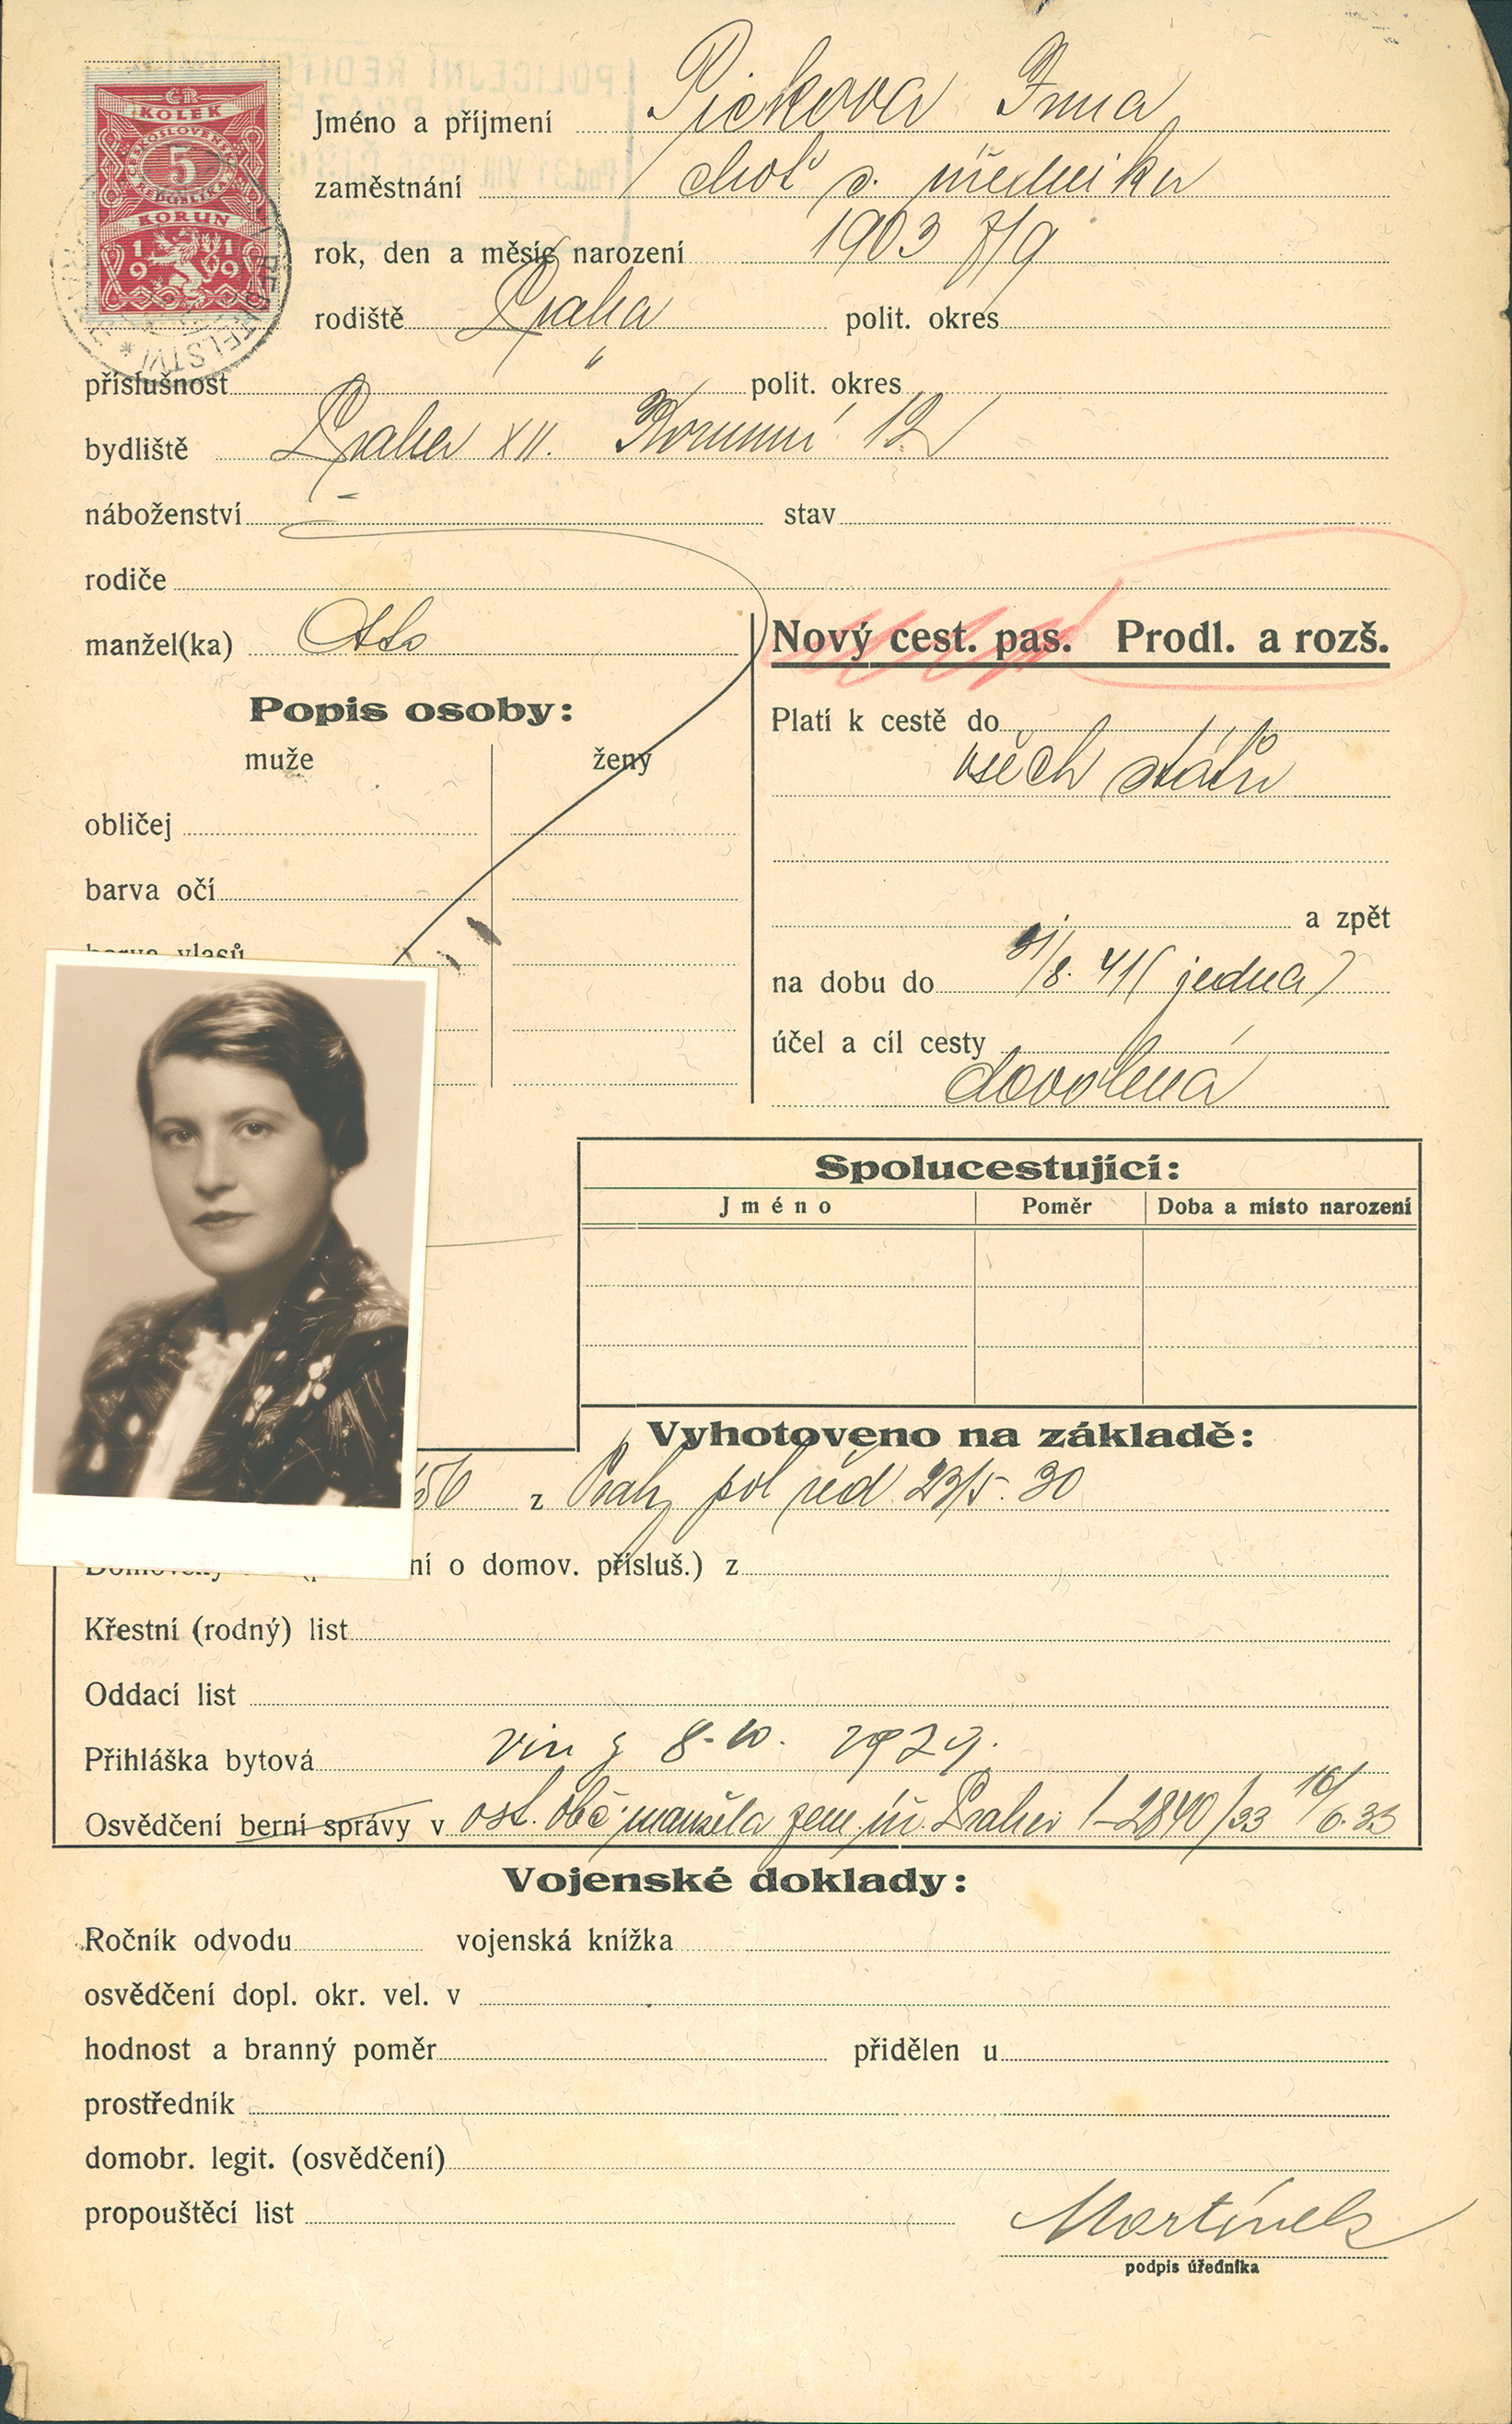 ČR
KOLEK
ČESKOSLOVENSKÁ
5
REPUBLIKA
KORUN
1919
POLICEJNÍ ŘEDITELSTVÍ
V PRAZE
31 VIII 1936
ŘEDITELSTVÍ
Jméno a příjmení Pickova Irma
zaměstnání choť s. úředníka
rok, den a měsíc narození 1903 7/9
rodiště Praha polit. okres
příslušnost " polit. okres
bydliště Praha XII. Korunní 12
náboženství stav
rodiče
manžel(ka) Oto
Nový cest. pas. Prodl. a rozš.
Popis osoby:
muže ženy
obličej
barva očí
barva vlasů
Platí k cestě do
všech států
a zpět
na dobu do 31/8. 41 (jedna)
účel a cíl cesty
dovolená
Spolucestující:
Jméno Poměr Doba a místo narození
Vyhotoveno na základě:
56 z Prahy pol řed 23/5. 30
Domovský ní o domov. přísluš.) z
Křestní (rodný) list
Oddací list
Přihláška bytová 8-10. 1929.
Osvědčení berní správy v ost. obč. manžela zem. úř. Praha 1-2840/33 16/6.33
Vojenské doklady:
Ročník odvodu vojenská knížka
osvědčení dopl. okr. vel. v
hodnost a branný poměr přidělen u
prostředník
domobr. legit. (osvědčení)
propouštěcí list
Martínek
podpis úředníka